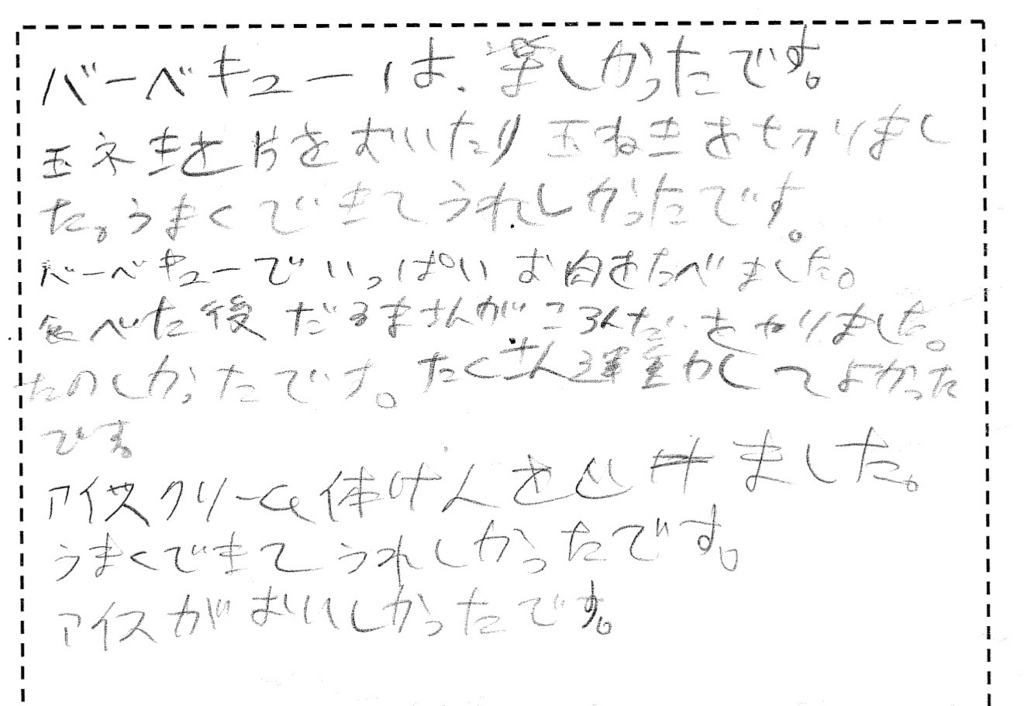 バーベキューは、楽しかったです。
玉ネギを片をむいたり玉ねぎを切りまし
た。うまくできてうれしかったです。
バーベキューでいっぱいお肉をたべました。
食べた後だるまさんがころんだをやりました。
たのしかったです。たくさん運動わしてよかった
です。
アイスクリーム体けんをしました。
うまくできてうれしかったです。
アイスがおいしかったです。